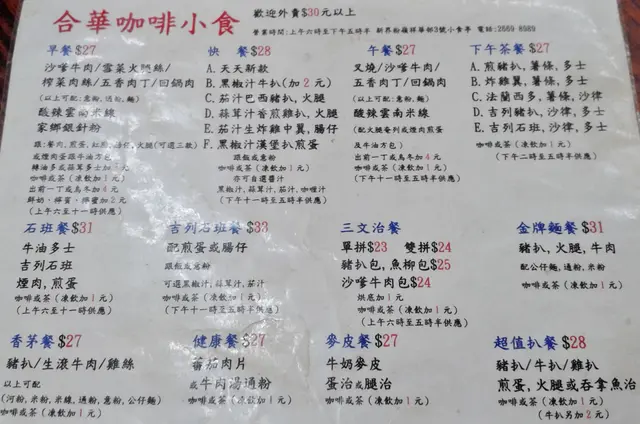 合華咖啡小食
歡迎外賣$30元以上
營業時間:上午六時至下午五時半 新界粉嶺祥華邨3號小食亭 電話:2669 8989
早餐$27
沙嗲牛肉/雪菜火腿絲/
榨菜肉絲/五香肉丁/回鍋肉
(以上可配:意粉,通粉,麵)
酸辣雲南米線
家鄉銀針粉
或煙肉煎蛋跟牛油方包
咖啡或茶(凍飲加1元)
出前一丁或烏冬加4元
(上午六至十一時供應)
快 餐$28
A.天天新款
B.黑椒汁牛扒(加2元)
C.茄汁巴西豬扒,火腿
D.蒜茸汁香煎雞扒,火腿
E.茄汁生炸雞中翼,腸仔
F.黑椒汁漢堡扒煎蛋
跟飯或意粉
咖啡或茶(凍飲加1元)
亦可自選醬汁
黑椒汁,蒜茸汁,茄汁,咖喱汁
(下午十一時至五時半供應)
午餐$27
叉燒/沙嗲牛肉/
五香肉丁/回鍋肉
酸辣雲南米線
(配火腿奄列或煙肉煎蛋
及牛油方包)
出前一丁或烏冬加4元
咖啡或茶(凍飲加1元)
(下午十一時至五時半供應)
下午茶餐$27
A.煎豬扒,薯條,多士
B.炸雞翼,薯條,多士
C.法蘭西多,薯條,沙律
D.吉列豬扒,沙律,多士
E.吉列石班,沙律,多士
咖啡或茶(凍飲加1元)
(下午二時至五時半供應)
石班餐$31
牛油多士
吉列石班
煙肉,煎蛋
咖啡或茶(凍飲加1元)
(上午六至十一時供應)
吉列石班餐$33
配煎蛋或腸仔
跟飯或意粉
可選黑椒汁,蒜茸汁,茄汁
咖啡或茶(凍飲加1元)
(下午十一時至五時半供應)
三文治餐
單拼$23 雙拼$24
豬扒包,魚柳包$25
沙嗲牛肉包$24
烘底加1元
咖啡或茶(凍飲加1元)
(上午六時至五時半供應)
金牌麵餐$31
豬扒,火腿,牛肉
配公仔麵,通粉,米粉
咖啡或茶(凍飲加1元)
香茅餐$27
豬扒/生滾牛肉/雞絲
以上可配
(河粉,米粉,米線,通粉,意粉,公仔麵)
咖啡或茶(凍飲加1元)
健康餐$27
蕃茄肉片
或牛肉湯通粉
咖啡或茶(凍飲加1元)
麥皮餐$27
牛奶麥皮
蛋治或腿治
咖啡或茶(凍飲加1元)
超值扒餐$28
豬扒/牛扒/雞扒
煎蛋,火腿或吞拿魚治
咖啡或茶(凍飲加1元)
(牛扒另加2元)